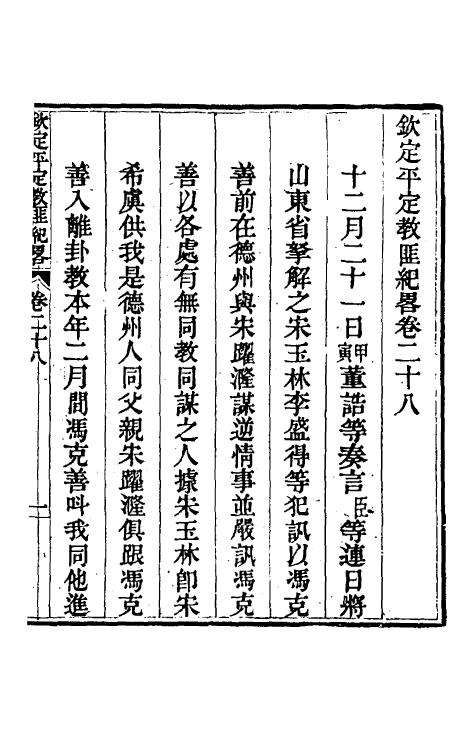 欽定平定教匪紀畧卷二十八
十二月二十一日甲寅董誥等奏言臣等連日將
山東省拏解之宋玉林李盛得等犯訊以馮克
善前在德州與宋躍漋謀逆情事並嚴訊馮克
善以各處有無同教同謀之人據朱玉林卽宋
希虞供我是德州人同父親宋躍漋俱跟馮克
善入離卦教本年二月間馮克善呌我同他進
欽定平定教匪紀畧 卷二十八 一